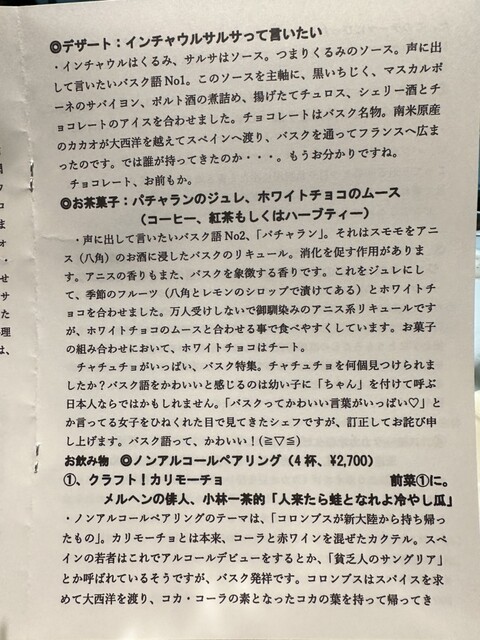 ◎デザート：インチャウルサルサって言いたい
・インチャウルはくるみ、サルサはソース。つまりくるみのソース。声に出
して言いたいバスク語No1。このソースを主軸に、黒いちじく、マスカルポ
ーネのサバイヨン、ポルト酒の煮詰め、揚げたてチュロス、シェリー酒とチ
ョコレートのアイスを合わせました。チョコレートはバスク名物。南米原産
のカカオが大西洋を越えてスペインへ渡り、バスクを通ってフランスへ広ま
ったのです。では誰が持ってきたのか・・・。もうお分かりですね。
チョコレート、お前もか。
◎お茶菓子：パチャランのジュレ、ホワイトチョコのムース
（コーヒー、紅茶もしくはハーブティー）
・声に出して言いたいバスク語No2、「パチャラン」。それはスモモをアニ
ス（八角）のお酒に浸したバスクのリキュール。消化を促す作用がありま
す。アニスの香りもまた、バスクを象徴する香りです。これをジュレにし
て、季節のフルーツ（八角とレモンのシロップで漬けてある）とホワイトチ
ョコを合わせました。万人受けしないで御馴染みのアニス系リキュールです
が、ホワイトチョコのムースと合わせる事で食べやすくしています。お菓子
の組み合わせにおいて、ホワイトチョコはチート。
チャチュチョがいっぱい、バスク特集。チャチュチョを何個見つけられま
したか？バスク語をかわいいと感じるのは幼い子に「ちゃん」を付けて呼ぶ
日本人ならではかもしれません。「バスクってかわいい言葉がいっぱい♡」と
か言ってる女子をひねくれた目で見てきたシェフですが、訂正してお詫び申
し上げます。バスク語って、かわいい！(≧▽≦)
お飲み物　◎ノンアルコールペアリング（4杯、¥2,700）
①、クラフト！カリモーチョ　前菜①に。
メルヘンの俳人、小林一茶的「人来たら蛙となれよ冷やし瓜」
・ノンアルコールペアリングのテーマは、「コロンブスが新大陸から持ち帰っ
たもの」。カリモーチョとは本来、コーラと赤ワインを混ぜたカクテル。スペ
インの若者はこれでアルコールデビューをするとか、「貧乏人のサングリア」
とか呼ばれているそうですが、バスク発祥です。コロンブスはスパイスを求
めて大西洋を渡り、コカ・コーラの素となったコカの葉を持って帰ってき